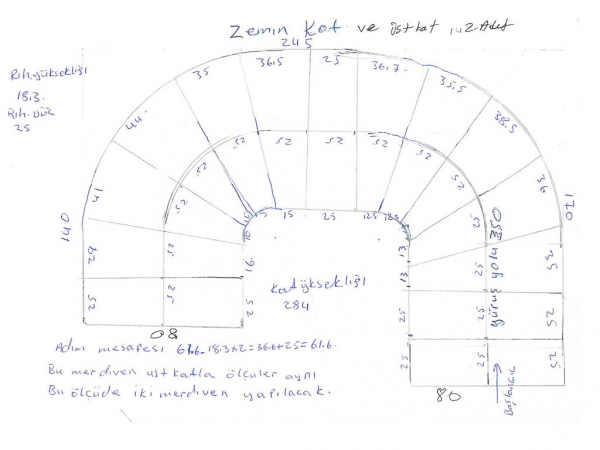 Zemin Kat ve üstkat için 2 Adet
245
Rıh.yüksekliği
18.3.
Rıh. Düz
25
35
36.5
25
36.7.
35.5
44
38.5
41
140
120
29
25
52
52
52
52
52
52
52
52
52
25
25
25
25
15
15
25
12.5
12.5
16
25
13
13
25
25
35
25
25
yürüş yolu 350
Katyüksekliği
284
80
80
Başlangıç
Adım mesafesi 61.6 - 18.3x2=36.6+25=61.6.
Bu merdiven üst katla ölçüler aynı
Bu ölçüde iki merdiven yapılacak.